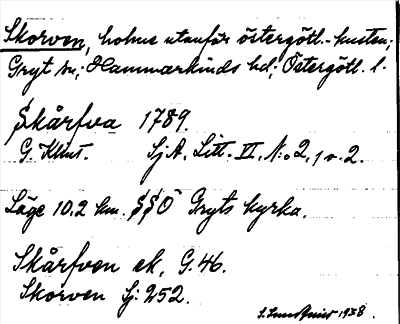 Skorven, holme utanför östergötl.-kusten;
Gryt sn; Hammarkinds hd; Östergötl. l.
Skårfva 1789.
G. Klint. Sj.A. Litt. II. N:o 2, 1 o. 2.
Läge 10.2 km. SSO Gryts kyrka.
Skårfven ek, G. 46.
Skorven Sj: 252.
1938.